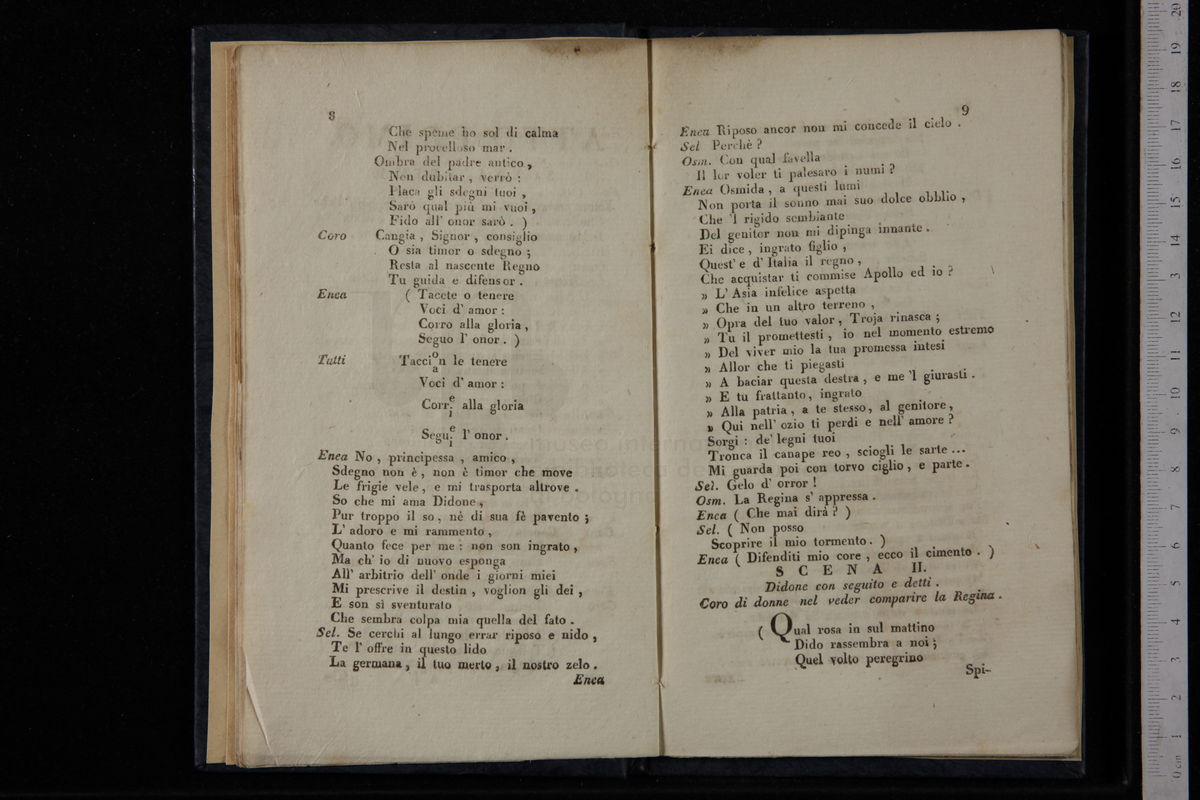 8
Che speme ho sol di calma
Nel procelloso mar .
Ombra del padre antico ,
Non dubitar , verrò :
Placa gli sdegni tuoi ,
Sarò qual più mi vuoi ,
Fido all' onor sarò . )
Coro Cangia , Signor , consiglio
O sia timor o sdegno ;
Resta al nascente Regno
Tu guida e difensor .
Enea ( Tacete o tenere
Voci d' amor :
Corro alla gloria ,
Seguo l' onor . )
Tutti Tacci o/a n le tenere
Voci d' amor :
Corr e/i alla gloria
Segu e/i l' onor .
Enea No , principessa , amico ,
Sdegno non è , non è timor che move
Le frigie vele , e mi trasporta altrove .
So che mi ama Didone ,
Pur troppo il so , nè di sua fè pavento ;
L' adoro e mi rammento ,
Quanto fece per me : non son ingrato ,
Ma ch' io di nuovo esponga
All' arbitrio dell' onde i giorni miei
Mi prescrive il destin , voglion gli dei ,
E son sì sventurato
Che sembra colpa mia quella del fato .
Sel. Se cerchi al lungo errar riposo e nido ,
Te l' offre in questo lido
La germana , il tuo merto , il nostro zelo .
Enea
9
Enea Riposo ancor non mi concede il cielo .
Sel Perchè ?
Osm. Con qual favella
Il lor voler ti palesaro i numi ?
Enea Osmida , a questi lumi
Non porta il sonno mai suo dolce obblio ,
Che 'l rigido sembiante
Del genitor non mi dipinga innante .
Ei dice , ingrato figlio ,
Quest' e d' Italia il regno ,
Che acquistar ti commise Apollo ed io ?
» L' Asia infelice aspetta
» Che in un altro terreno ,
» Opra del tuo valor , Troja rinasca ;
» Tu il promettesti , io nel momento estremo
» Del viver mio la tua promessa intesi
» Allor che ti piegasti
» A baciar questa destra , e me 'l giurasti .
» E tu frattanto , ingrato
» Alla patria , a te stesso , al genitore ,
» Qui nell' ozio ti perdi e nell' amore ?
Sorgi : de' legni tuoi
Tronca il canape reo , sciogli le sarte ...
Mi guarda poi con torvo ciglio , e parte .
Sel. Gelo d' orror !
Osm. La Regina s' appressa .
Enea ( Che mai dirà ? )
Sel. ( Non posso
Scoprire il mio tormento . )
Enea ( Difenditi mio core , ecco il cimento . )
SCENA II.
Didone con seguito e detti .
Coro di donne nel veder comparire la Regina .
( Qual rosa in sul mattino
Dido rassembra a noi ;
Quel volto peregrino
Spi-